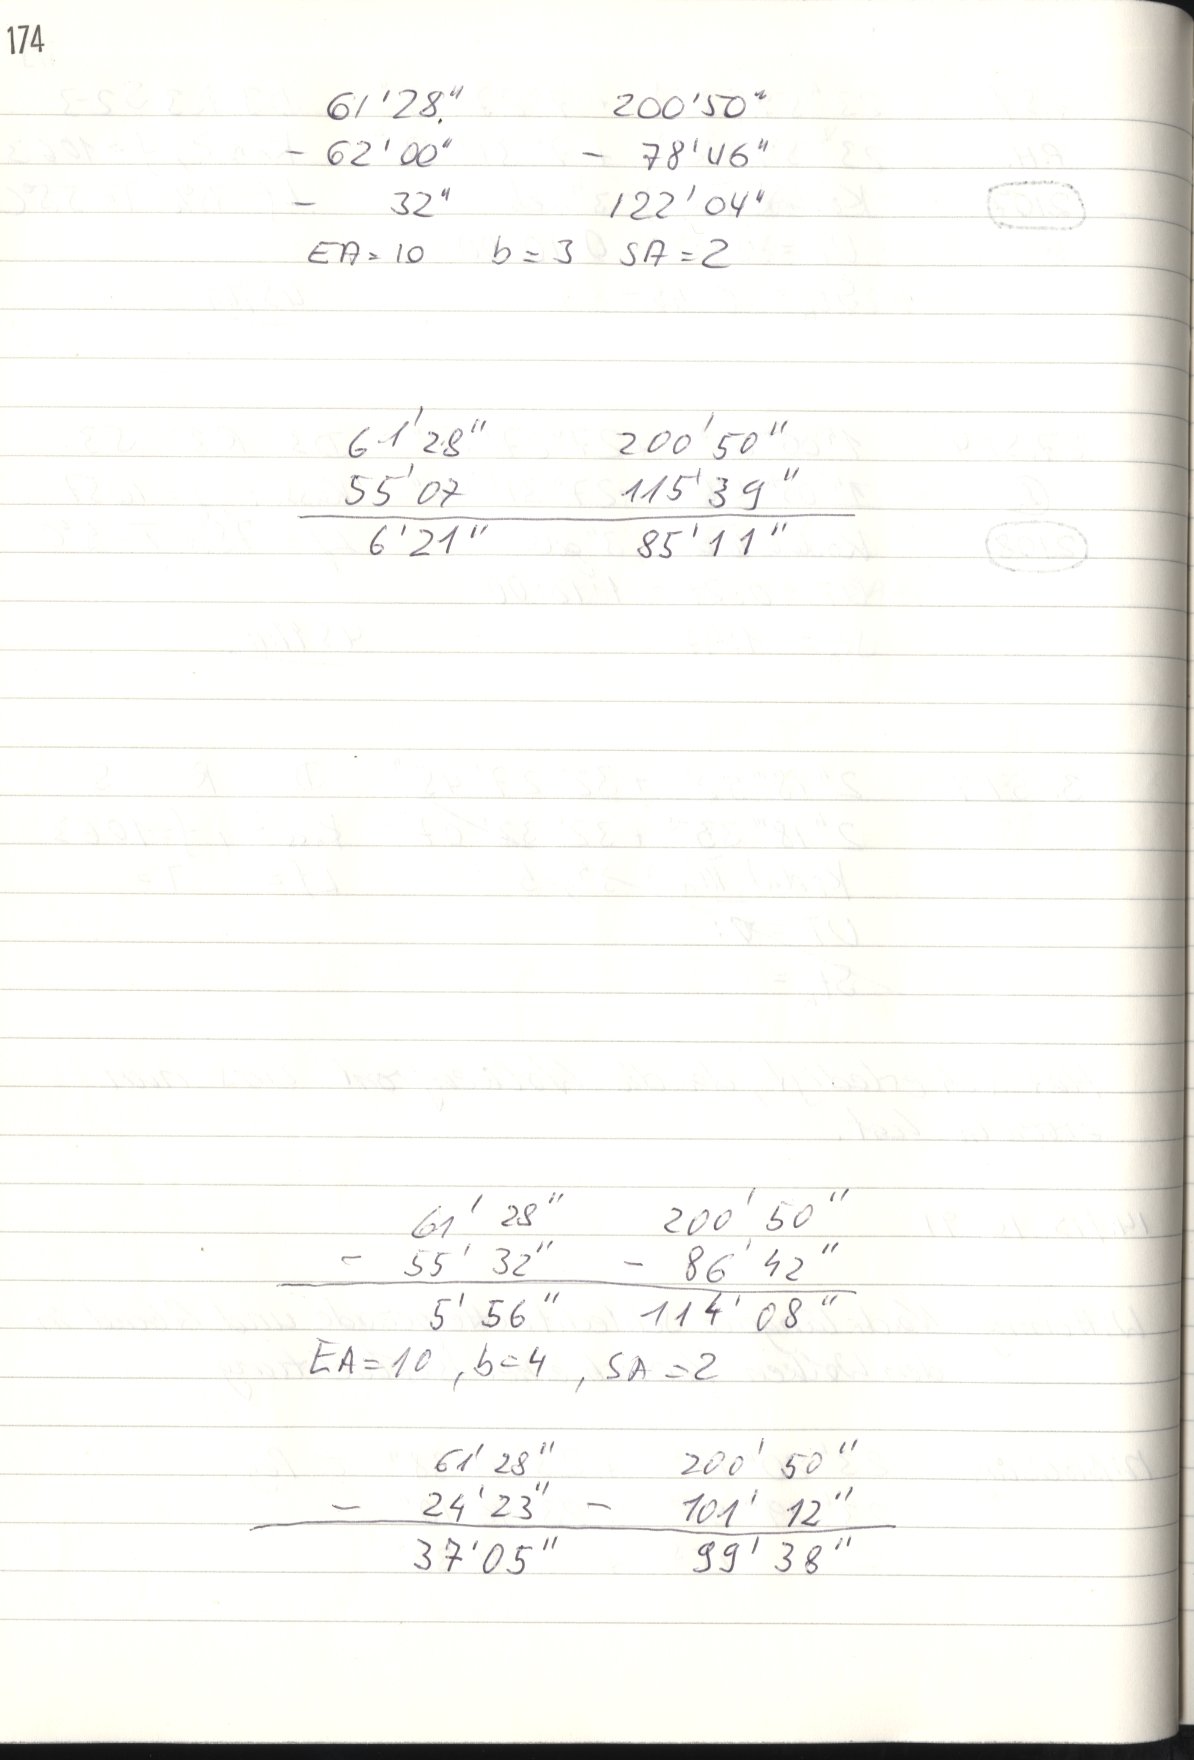 174
61'28" 200'50"
- 62'00" - 78'46"
- 32" 122'04"
EA=10 b=3 SA=2
61'28" 200'50"
55'07 115'39"
6'21" 85'11"
61'28" 200'50"
- 55'32" - 86'42"
5'56" 114'08"
EA=10, b=4, SA=2
61'28" 200'50"
- 24'23" - 101'12"
37'05" 99'38"